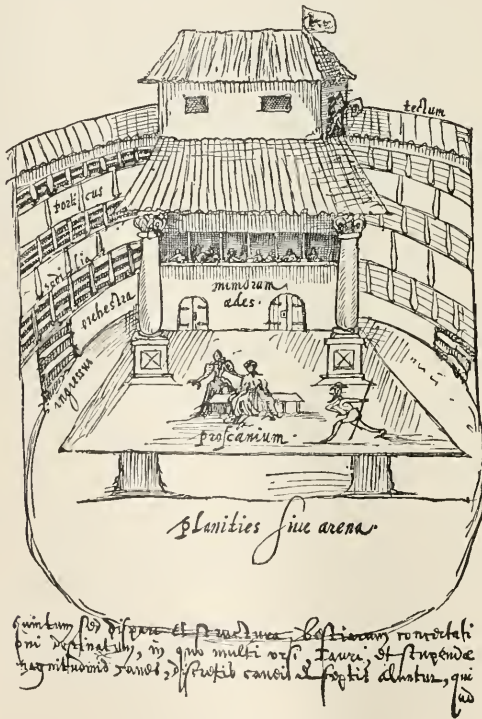 tectum
porticus
sedilia
orchestra
mimorum
ædes.
ingressus
proscænium.
planities sive arena.
quintum sed dispari et structura, bestiarum concertati
oni destinatum, in quo multi ursi, Tauri, et stupendæ
magnitudinis canes, discretis caveis et septis aluntur, qui
ad